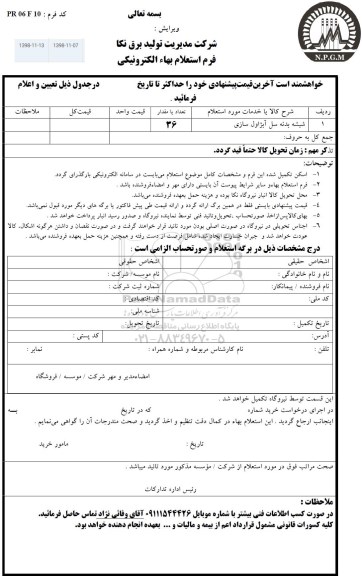 بسمه تعالی
کد فرم : PR 06 F 10
ویرایش :
1398-11-13 1398-11-07
شرکت مدیریت تولید برق نکا
فرم استعلام بهاء الکترونیکی
N.P.G.M
خواهشمند است آخرین قیمت پیشنهادی خود را حداکثر تا تاریخ درجدول ذیل تعیین و اعلام فرمائید .
ردیف شرح کالا یا خدمات مورد استعلام تعداد یا مقدار قیمت واحد قیمت کل ملاحظات
۱ شیشه بدنه سل آبژاول سازی ۳۶
جمع کل به حروف:
تذکر مهم : زمان تحویل کالا حتماً قید گردد.
توضیحات:
۱- اسکن تکمیل شده این فرم و مشخصات کامل موضوع استعلام می‌بایست در سامانه الکترونیکی بارگذراری گردد.
۲- فرم استعلام بهاءو سایر شرایط پیوست آن بایستی دارای مهر و امضاءفروشنده باشد .
۳- محل تحویل کالا انبار نیروگاه نکا بوده، و هزینه حمل بعهده فروشنده می‌باشد.
۴- قیمت پیشنهادی بایستی فقط در همین برگه ارائه گردد و ارائه قیمت طی پیش فاکتور یا برگه های دیگر مورد قبول نمی‌باشد.
۵- بهای‌کالاپس‌ازاخذ صورتحساب ،تحویل‌وتائید فنی توسط نماینده نیروگاه و صدور رسید انبار پرداخت خواهد شد .
۶- اجناس تحویلی در نیروگاه در صورت اصلی بودن مورد تائید قرار خواهند گرفت و در صورت نقصان و داشتن هرگونه اشکال، کالا عودت خواهد شد و جبران خسارت ایجاد شده شامل فرصت از دست رفته و همچنین هزینه حمل بعهده فروشنده می‌باشد.
درج مشخصات ذیل در برگه استعلام و صورتحساب الزامی است :
اشخاص حقیقی اشخاص حقوقی
نام و نام خانوادگی : نام موسسه/ شرکت :
نام فروشنده / پیمانکار: شماره ثبت شرکت :
کد ملی: کد اقتصادی:
شناسه ملی:
تاریخ تکمیل : تاریخ تحویل:
آدرس: کد پستی :
تلفن : نام کارشناس مربوطه و شماره همراه : نمابر :
ParsNamadData
۰۲۱-۸۸۳۴۹۶۷۰-۵
امضاءمدیر و مهر شرکت / موسسه / فروشگاه
این قسمت توسط نیروگاه تکمیل خواهد شد .
در اجرای درخواست خرید شماره که در تاریخ بسه
اینجانب ارجاع گردید . این استعلام بهاء در کمال دقت تنظیم و اخذ گردید و صحت مندرجات آن را گواهی می‌نمایم .
تاریخ : مامور خرید
صحت مراتب فوق در مورد استعلام از شرکت / مؤسسه مذکور مورد تائید میباشد .
رئیس اداره تدارکات
ملاحظات :
در صورت کسب اطلاعات فنی بیشتر با شماره موبایل ۰۹۱۱۱۵۴۴۴۲۶ آقای وفائی نژاد تماس حاصل فرمائید.
کلیه کسورات قانونی مشمول قرارداد اعم از بیمه و مالیات و ... بعهده انجام دهنده خواهد بود.